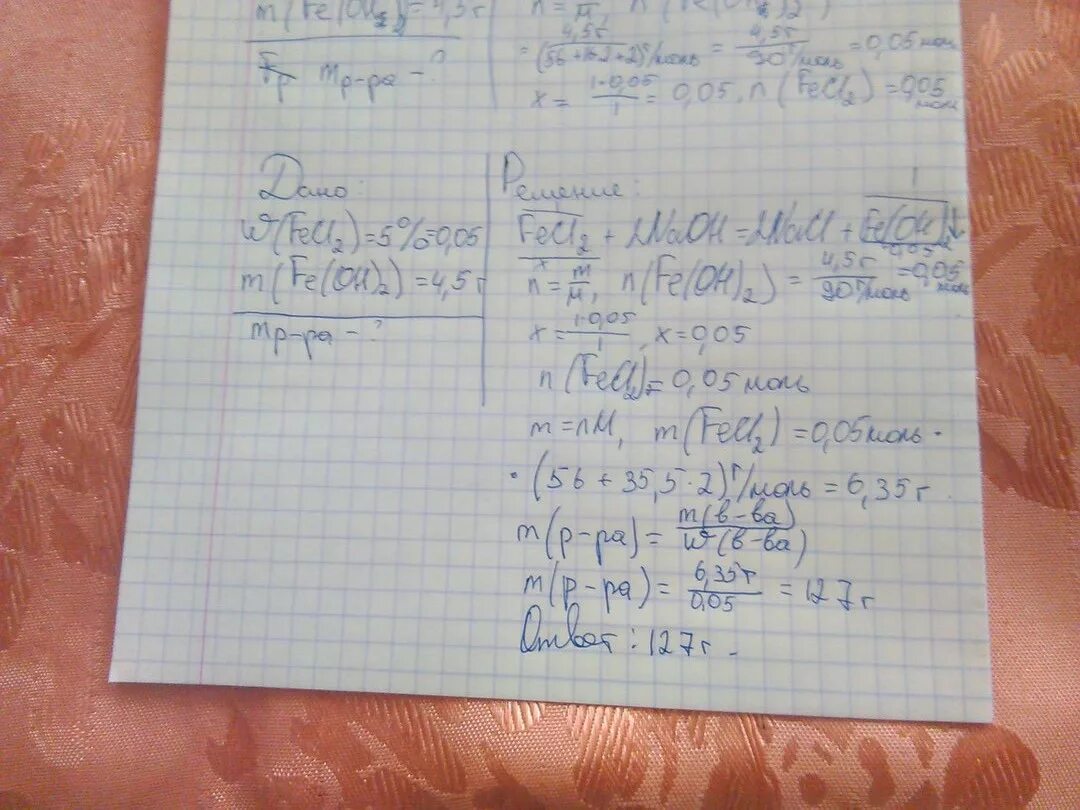 m(Fe(OH)2)=4,5г
mр-ра -?
=4,5г/(56+16·2+2)г/моль = 4,5г/90г/моль =0,05моль
x= 1·0,05/1 = 0,05, n(FeCl2)=0,05моль
Дано:
W(FeCl2)=5%=0,05
m(Fe(OH)2)=4,5г
mр-ра -?
Решение:
1
FeCl2 + 2NaOH=2NaCl + Fe(OH)2↓
x 0,05
n=m/M, n(Fe(OH)2)=4,5г/90г/моль=0,05моль
x=1·0,05/1, x=0,05
n(FeCl2)=0,05моль
m=nM, m(FeCl2)=0,05моль·
·(56+35,5·2)г/моль=6,35г
m(р-ра)=m(в-ва)/W(в-ва)
m(р-ра)=6,35г/0,05=127г
Ответ: 127г.